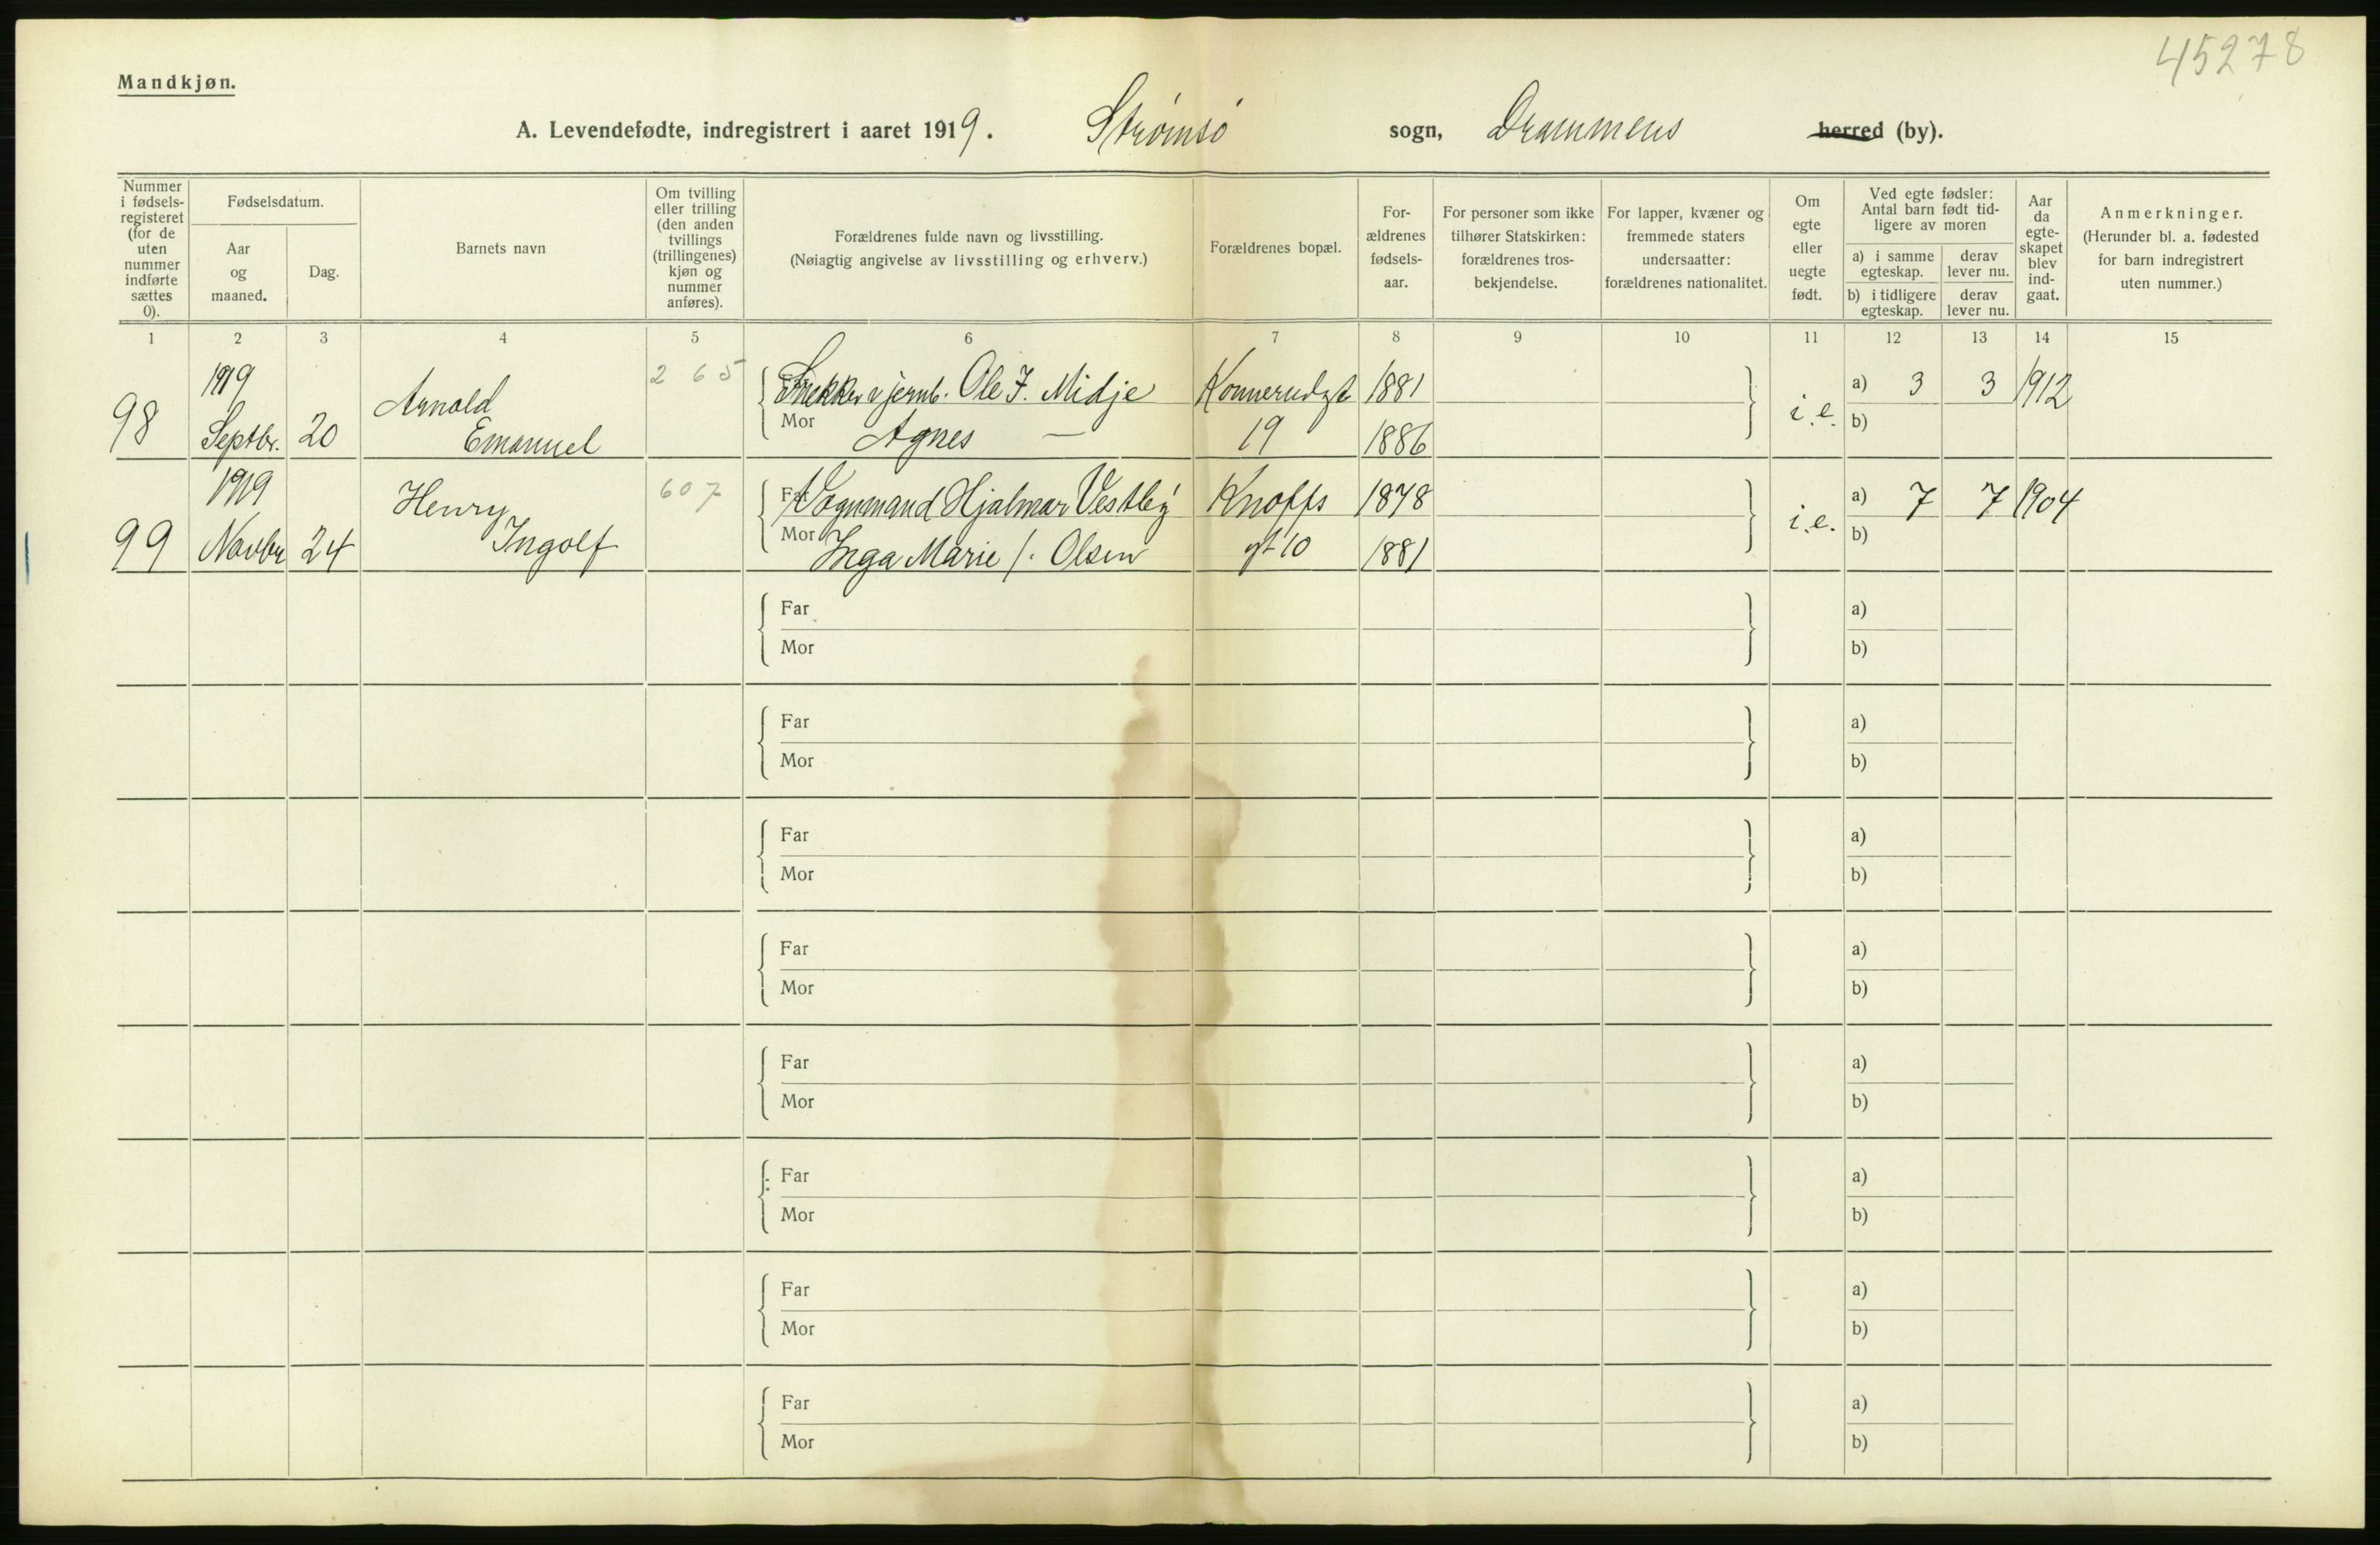 45278
Mandkjøn.
A. Levendefødte, indregistrert i aaret 1919. Strømsø sogn, Drammens herred (by).
Nummer i fødsels-registeret (for de uten nummer indførte sættes 0).
Fødselsdatum.
Aar og maaned.
Dag.
Barnets navn
Om tvilling eller trilling (den anden tvillings (trillingenes) kjøn og nummer anføres).
Forældrenes fulde navn og livsstilling.
(Nøiagtig angivelse av livsstilling og erhverv.)
Forældrenes bopæl.
For-ældrenes fødsels-aar.
For personer som ikke tilhører Statskirken: forældrenes tros-bekjendelse.
For lapper, kvæner og fremmede staters undersaatter: forældrenes nationalitet.
Om egte eller uegte født.
Ved egte fødsler: Antal barn født tid-ligere av moren
a) i samme egteskap.
derav lever nu.
b) i tidligere egteskap.
derav lever nu.
Aar da egte-skapet blev ind-gaat.
Anmerkninger.
(Herunder bl. a. fødested for barn indregistrert uten nummer.)
1 2 3 4 5 6 7 8 9 10 11 12 13 14 15
98 1919 Septbr. 20 Arnold Emanuel 2 65
Far v jernb. Ole J. Midje Konnerudgt 1881
Mor Agnes — 19 1886
i.e. a) 3 3 1912
b)
99 1919 Novbr 24 Henry Ingolf 607
Far Vognmand Hjalmar Vestby Knoffs 1878
Mor Inga Marie f. Olsen gt 10 1881
i.e. a) 7 7 1904
b)
Far a)
Mor b)
Far a)
Mor b)
Far a)
Mor b)
Far a)
Mor b)
Far a)
Mor b)
Far a)
Mor b)
Far a)
Mor b)
Far a)
Mor b)